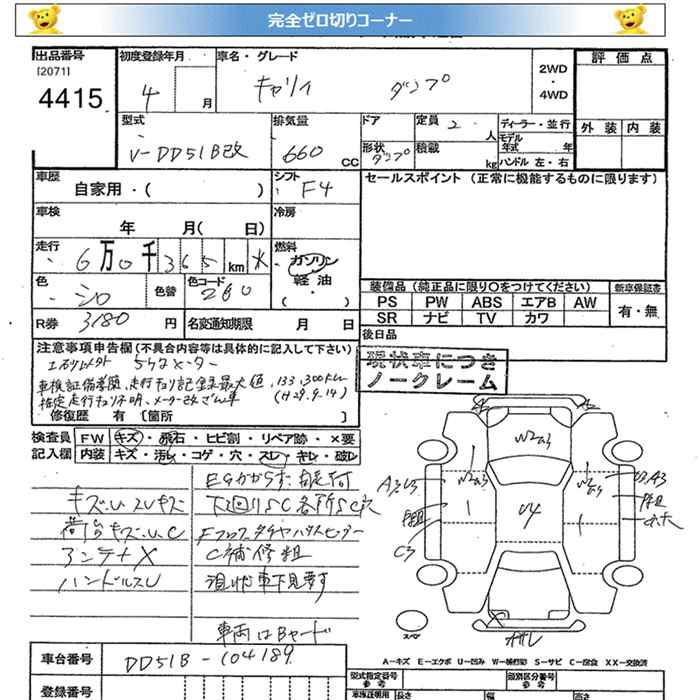 完全ゼロ切りコーナー
出品番号
[2071]
4415
初度登録年月
4 月
車名・グレード
キャリイ ダンプ
2WD
・
4WD
評価点
外装 内装
型式
V-DD51B改
排気量
660 CC
ドア
形状
ダンプ
定員 2 人
積載 kg
ディーラー・並行
モデル
年式 年
ハンドル 左・右
車歴
自家用・( )
シフト
F4
セールスポイント (正常に機能するものに限ります)
車検
年 月( 日)
冷房
走行
6万0千365 km
燃料
ガソリン
軽油
・( )
色
シロ
色替
色コード
26U
装備品 (純正品に限り○をつけてください)
PS PW ABS エアB AW
SR ナビ TV カワ
新車保証書
有・無
R券 3180 円
名変通知期限 月 日
後日品
注意事項申告欄 (不具合内容等は具体的に記入して下さい)
5ケタメーター
車検証備考欄、走行キョリ記録最大値 133,300km
推定走行キョリ不明、メーター改ざん車 (H29.9.14)
修復歴 有 [箇所 ]
現状車につき
ノークレーム
検査員 FW キズ・飛石・ヒビ割・リペア跡・×要
記入欄 内装 キズ・汚レ・コゲ・穴・スレ・キレ・破レ
EGかからず
キズ・U スレキズ
下回りSC各所SC穴
荷台キズ・U・C
アンテナX
C補修粗
ハンドルスレ
現状車下見要す
車両はBヤード
W2a3
W2a3
W2a3
U4
C3
スペア
サガレ
A-キズ E-エクボ U-凹み W-補修跡 S-サビ C-腐食 XX-交換済
車台番号
DD51B-104189
登録番号
型式指定番号
参考
類別区分番号
参考
車検証明用 長さ 幅 高さ